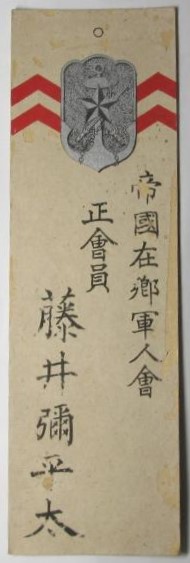 帝國在郷軍人會
正會員
藤井彌平太